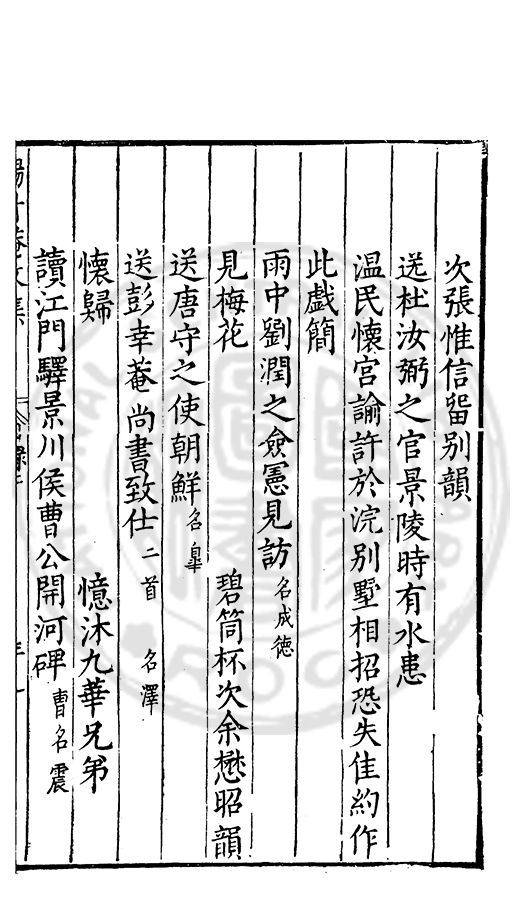 次張惟信留別韻
送杜汝弼之官景陵時有水患
温民懷宮諭許於浣別墅相招恐失佳約作
此戲簡
雨中劉潤之僉憲見訪名成德
見梅花 碧筒杯次余懋昭韻
送唐守之使朝鮮名臯
送彭幸菴尚書致仕二首 名澤
懷歸 憶沐九華兄弟
讀江門驛景川侯曹公開河碑曹名震